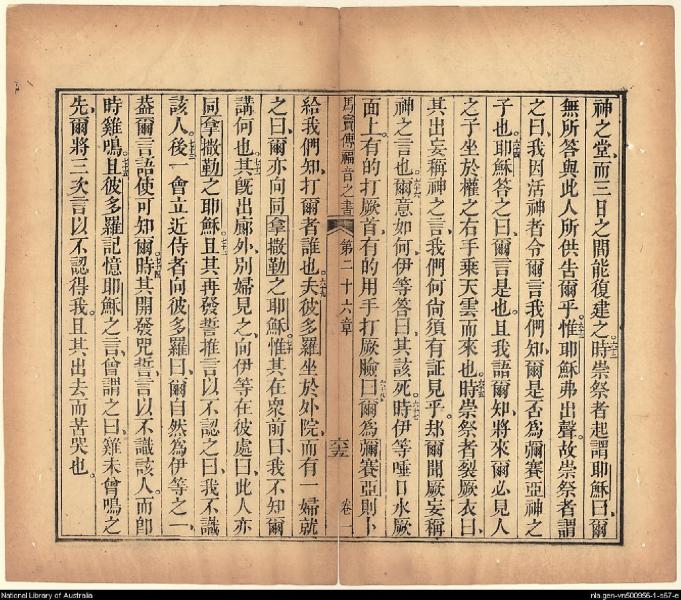 神之堂而三日之間能復建之六二時崇祭者起謂耶穌曰爾
無所答與此人所供告爾乎六三惟耶穌弗出聲故崇祭者謂
之曰我因活神者令爾言我們知爾是否為彌賽亞神之
子也六四耶穌答之曰爾言是也且我語爾知將來爾必見人
之子坐於權之右手乘天雲而來也六五時崇祭者裂厥衣曰
其出妄稱神之言我們何尚須有証見乎却爾聞厥妄稱
神之言也六六爾意如何伊等答曰其該死六七時伊等唾口水厥
面上有的打厥首有的用手打厥臉曰六八爾為彌賽亞則卜
馬竇傳福音之書 第二十六章 卷一
給我們知打爾者誰也六九夫彼多羅坐於外院而有一婦就
之曰爾亦向同拿撒勒之耶穌七十惟其在衆前曰我不知爾
講何也七一其既出廊外別婦見之向伊等在彼處曰此人亦
同拿撒勒之耶穌七二且其再發誓推言以不認之曰我不識
該人七三後一會立近侍者向彼多羅曰爾自然為伊等之一
葢爾言語使可知爾七四時其開發咒誓言以不識該人而即
時雞鳴七五且彼多羅記憶耶穌之言曾謂之曰雞未曾鳴之
先爾將三次言以不認得我且其出去而苦哭也
National Library of Australia
nla.gen-vn500956-1-s67-e